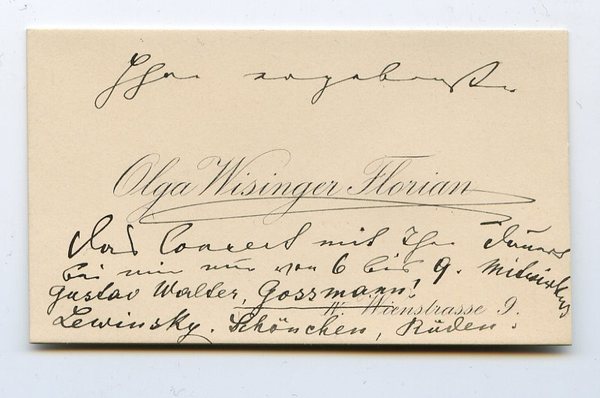 Ihre ergebenste
Olga Wisinger Florian
Das Concert mit Thee dauert
bei mir nur von 6 bis 9. Mitwirkung
Gustav Walter, Gossmann!
IV. Wienstrasse 9.
Lewinsky. Schönchen, Rüden.